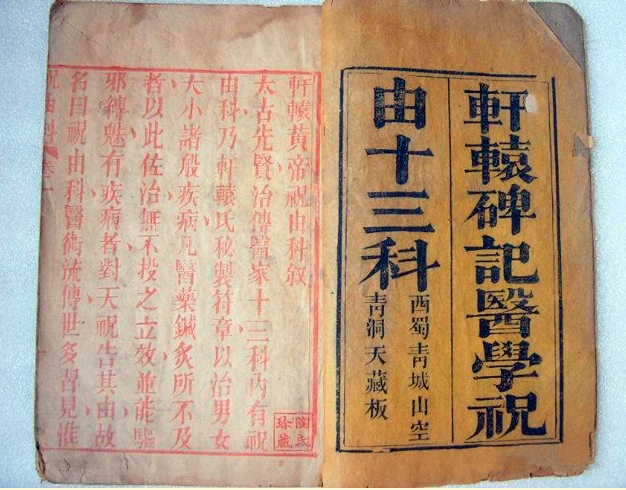 軒轅碑記醫學祝
由十三科
西蜀青城山空
青洞天藏板
軒轅黃帝祝由科敘
太古先賢治傳醫家十三科內有祝
由科乃軒轅氏秘製符章以治男女
大小諸般疾病凡醫藥鍼炙所不及
者以此佐治無不投之立效並能驅
邪縛魅有疾病者對天祝告其由故
名曰祝由科醫術流傳世多罟見惟
祝由科 卷一
珍藏